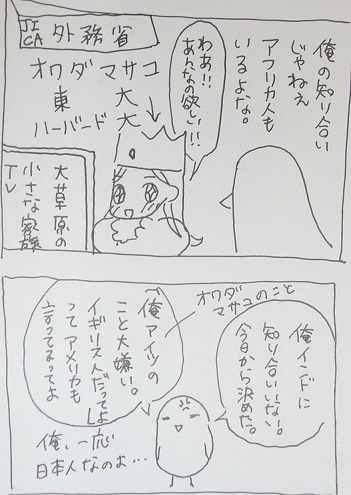 俺の知り合い
じゃねえ
アフリカ人も
いるよな。
わあ!!
あんなの欲しい!!
JI
CA
外務省
オワダマサコ
東大
ハーバード大
大草原の
小さな家族
TV
俺インドに
知り合いいない。
今日から決めた。
オワダ
マサコのこと
俺アイツの
こと大嫌い。
イギリス人だってよ
ってアメリカも
言ってるってよ
俺、一応
日本人なのよ…